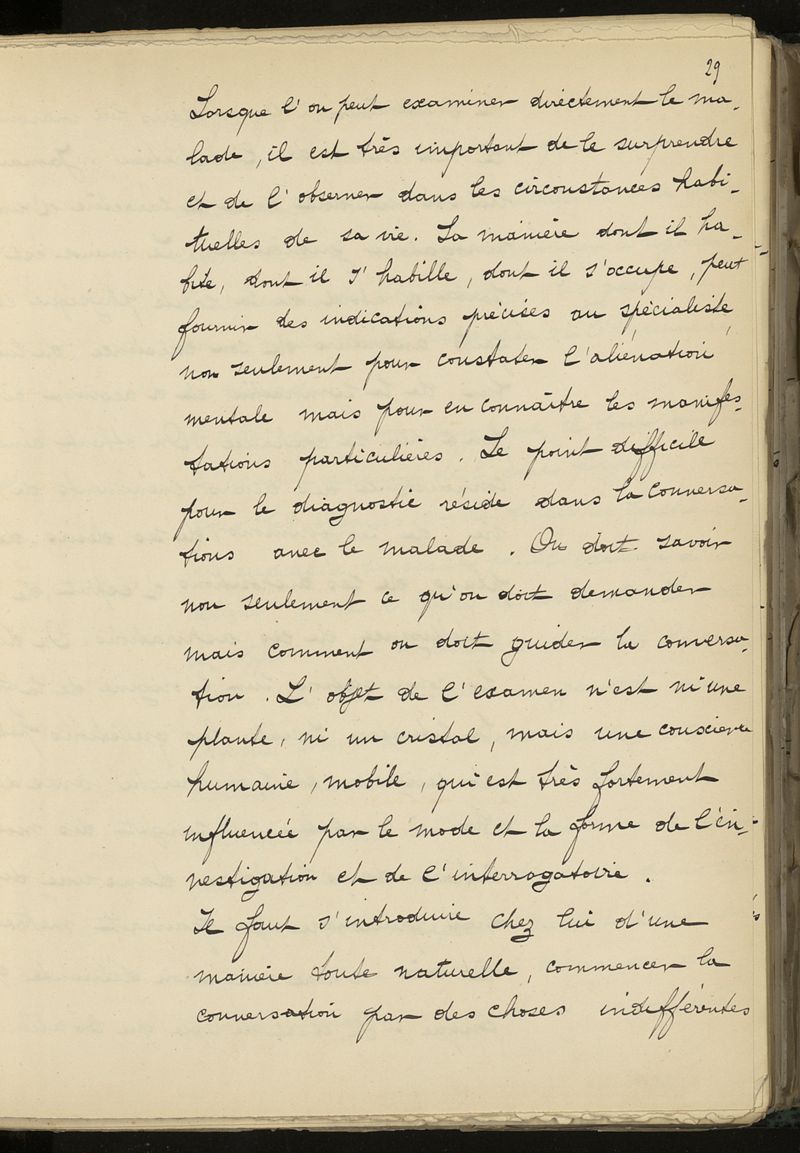 29
Lorsque l'on peut examiner directement le ma-
lade, il est très important de le surprendre
et de l'observer dans les circonstances habi-
tuelles de sa vie. La manière dont il ha-
bite, dont il s'habille, dont il s'occupe, peut
fournir des indications précises au spécialiste
non seulement pour constater l'aliénation
mentale mais pour en connaître les manifes-
tations particulières. Le point difficile
pour le diagnostic réside dans la conversa-
tions avec le malade. On doit savoir
non seulement ce qu'on doit demander
mais comment on doit guider la conversa-
tion. L'objet de l'examen n'est ni une
plante, ni un cristal, mais une conscience
humaine, mobile, qui est très fortement
influencée par le mode et la forme de l'in-
vestigation et de l'interrogatoire.
Il faut s'introduire chez lui d'une
manière toute naturelle, commencer la
conversation par des choses indifférentes